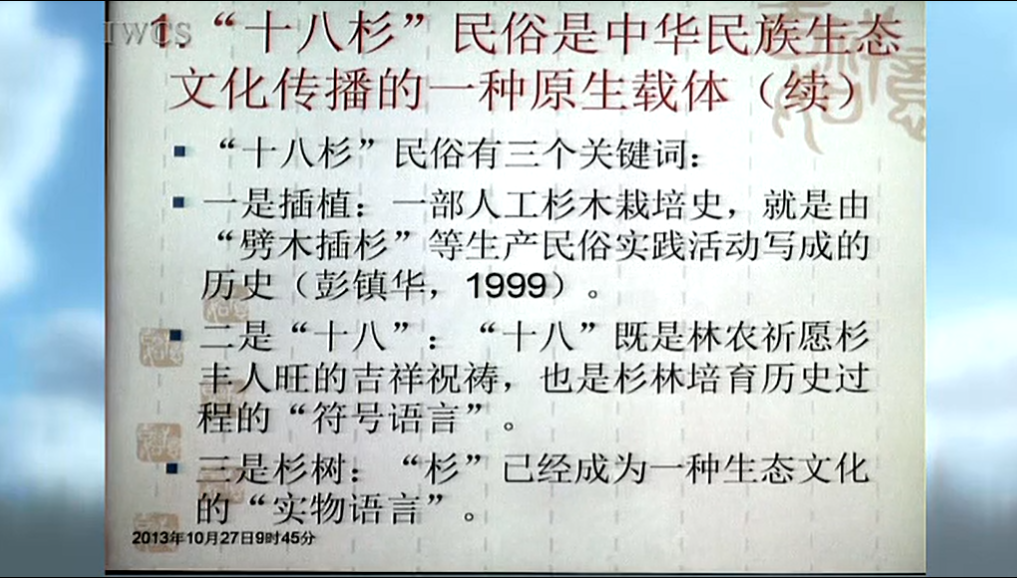 IWCS
1.“十八杉”民俗是中华民族生态
文化传播的一种原生载体（续）
“十八杉”民俗有三个关键词：
一是插植：一部人工杉木栽培史，就是由
“劈木插杉”等生产民俗实践活动写成的
历史（彭镇华，1999）。
二是“十八”：“十八”既是林农祈愿杉
丰人旺的吉祥祝祷，也是杉林培育历史过
程的“符号语言”。
三是杉树：“杉”已经成为一种生态文化
的“实物语言”。
2013年10月27日9时45分